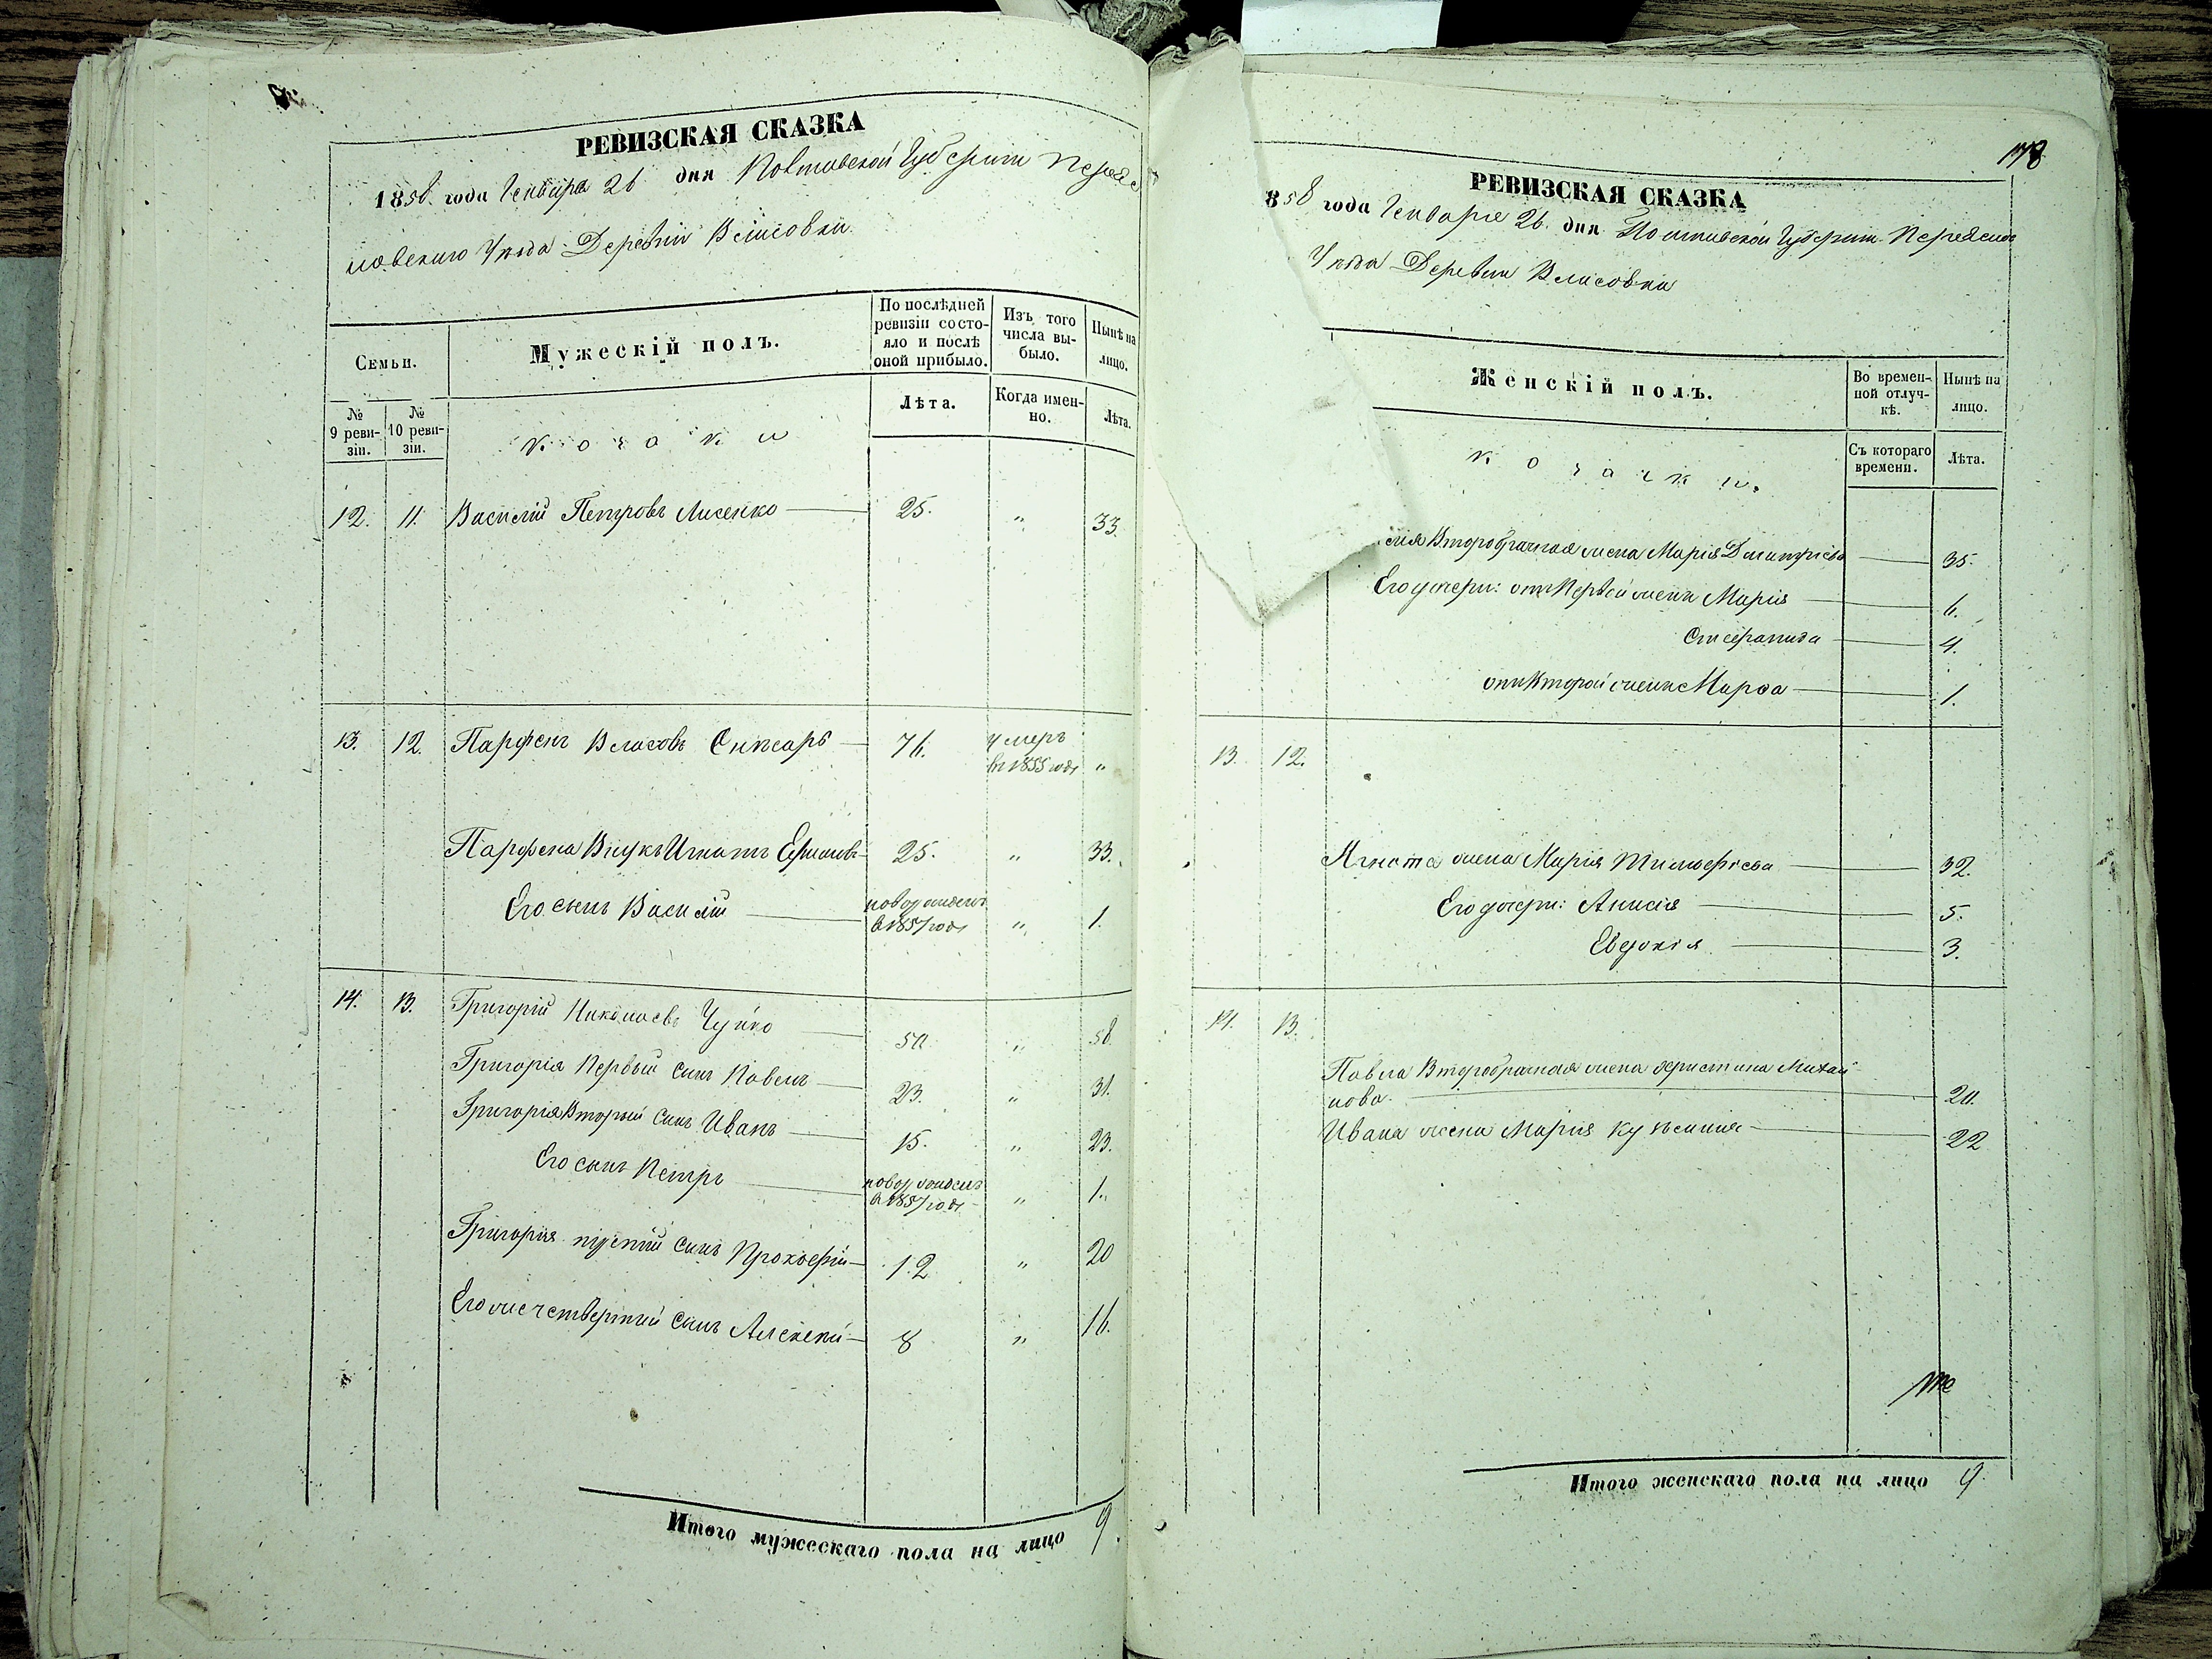 РЕВИЗСКАЯ СКАЗКА
1858 года Генваря 26 дня Полтавской Губернии Переяс
лавского Уезда Деревни Власовки
Семьи.
Мужескій полъ.
По послѣдней ревизіи состояло и послѣ оной прибыло.
Изъ того числа выбыло.
Нынѣ на лицо.
№ 9 ревизіи.
№ 10 ревизіи.
Козаки
Лѣта.
Когда именно.
Лѣта.
12. 11. Василій Петровъ Лисенко 25. „ 33.
13. 12. Парфенъ Власовъ 76. умеръ
въ 1855 годѣ „
Парфена Внукъ Игнатъ 25. „ 33.
Его сынъ Василій новорожденъ
въ 1857 годѣ „ 1.
14. 13. Григорій Николаевъ Чуйко 50. „ 58.
Григорія Первый сынъ Павелъ 23. „ 31.
Григорія Вторый сынъ Иванъ 15. „ 23.
Его сынъ Петръ новорожденъ
въ 1857 годѣ „ 1.
Григорія третій сынъ Прокофій 12 „ 20
Его же четвертый сынъ Алексѣй 8 „ 16.
Итого мужескаго пола на лицо 9.
178
РЕВИЗСКАЯ СКАЗКА
858 года Генваря 26. дня Полтавской Губернии Переяслав
Уезда Деревни Власовки
Женскій полъ.
Во временной отлучкѣ.
Нынѣ на лицо.
Козачки.
Съ котораго времени.
Лѣта.
лія Второбрачная жена Марія Дмитріева 35.
Его дочери: отъ Первой жены Марія 6.
Степанида 4.
отъ Второй жены Марфа 1.
13. 12.
Игната жена Марія Тимофіева 32.
Его дочери: Анисія 5.
Евдокія 3.
14. 13.
Павла Второбрачная жена Христина Михай
лова. 20.
Ивана жена Марія 22
Итого женскаго пола на лицо 9.